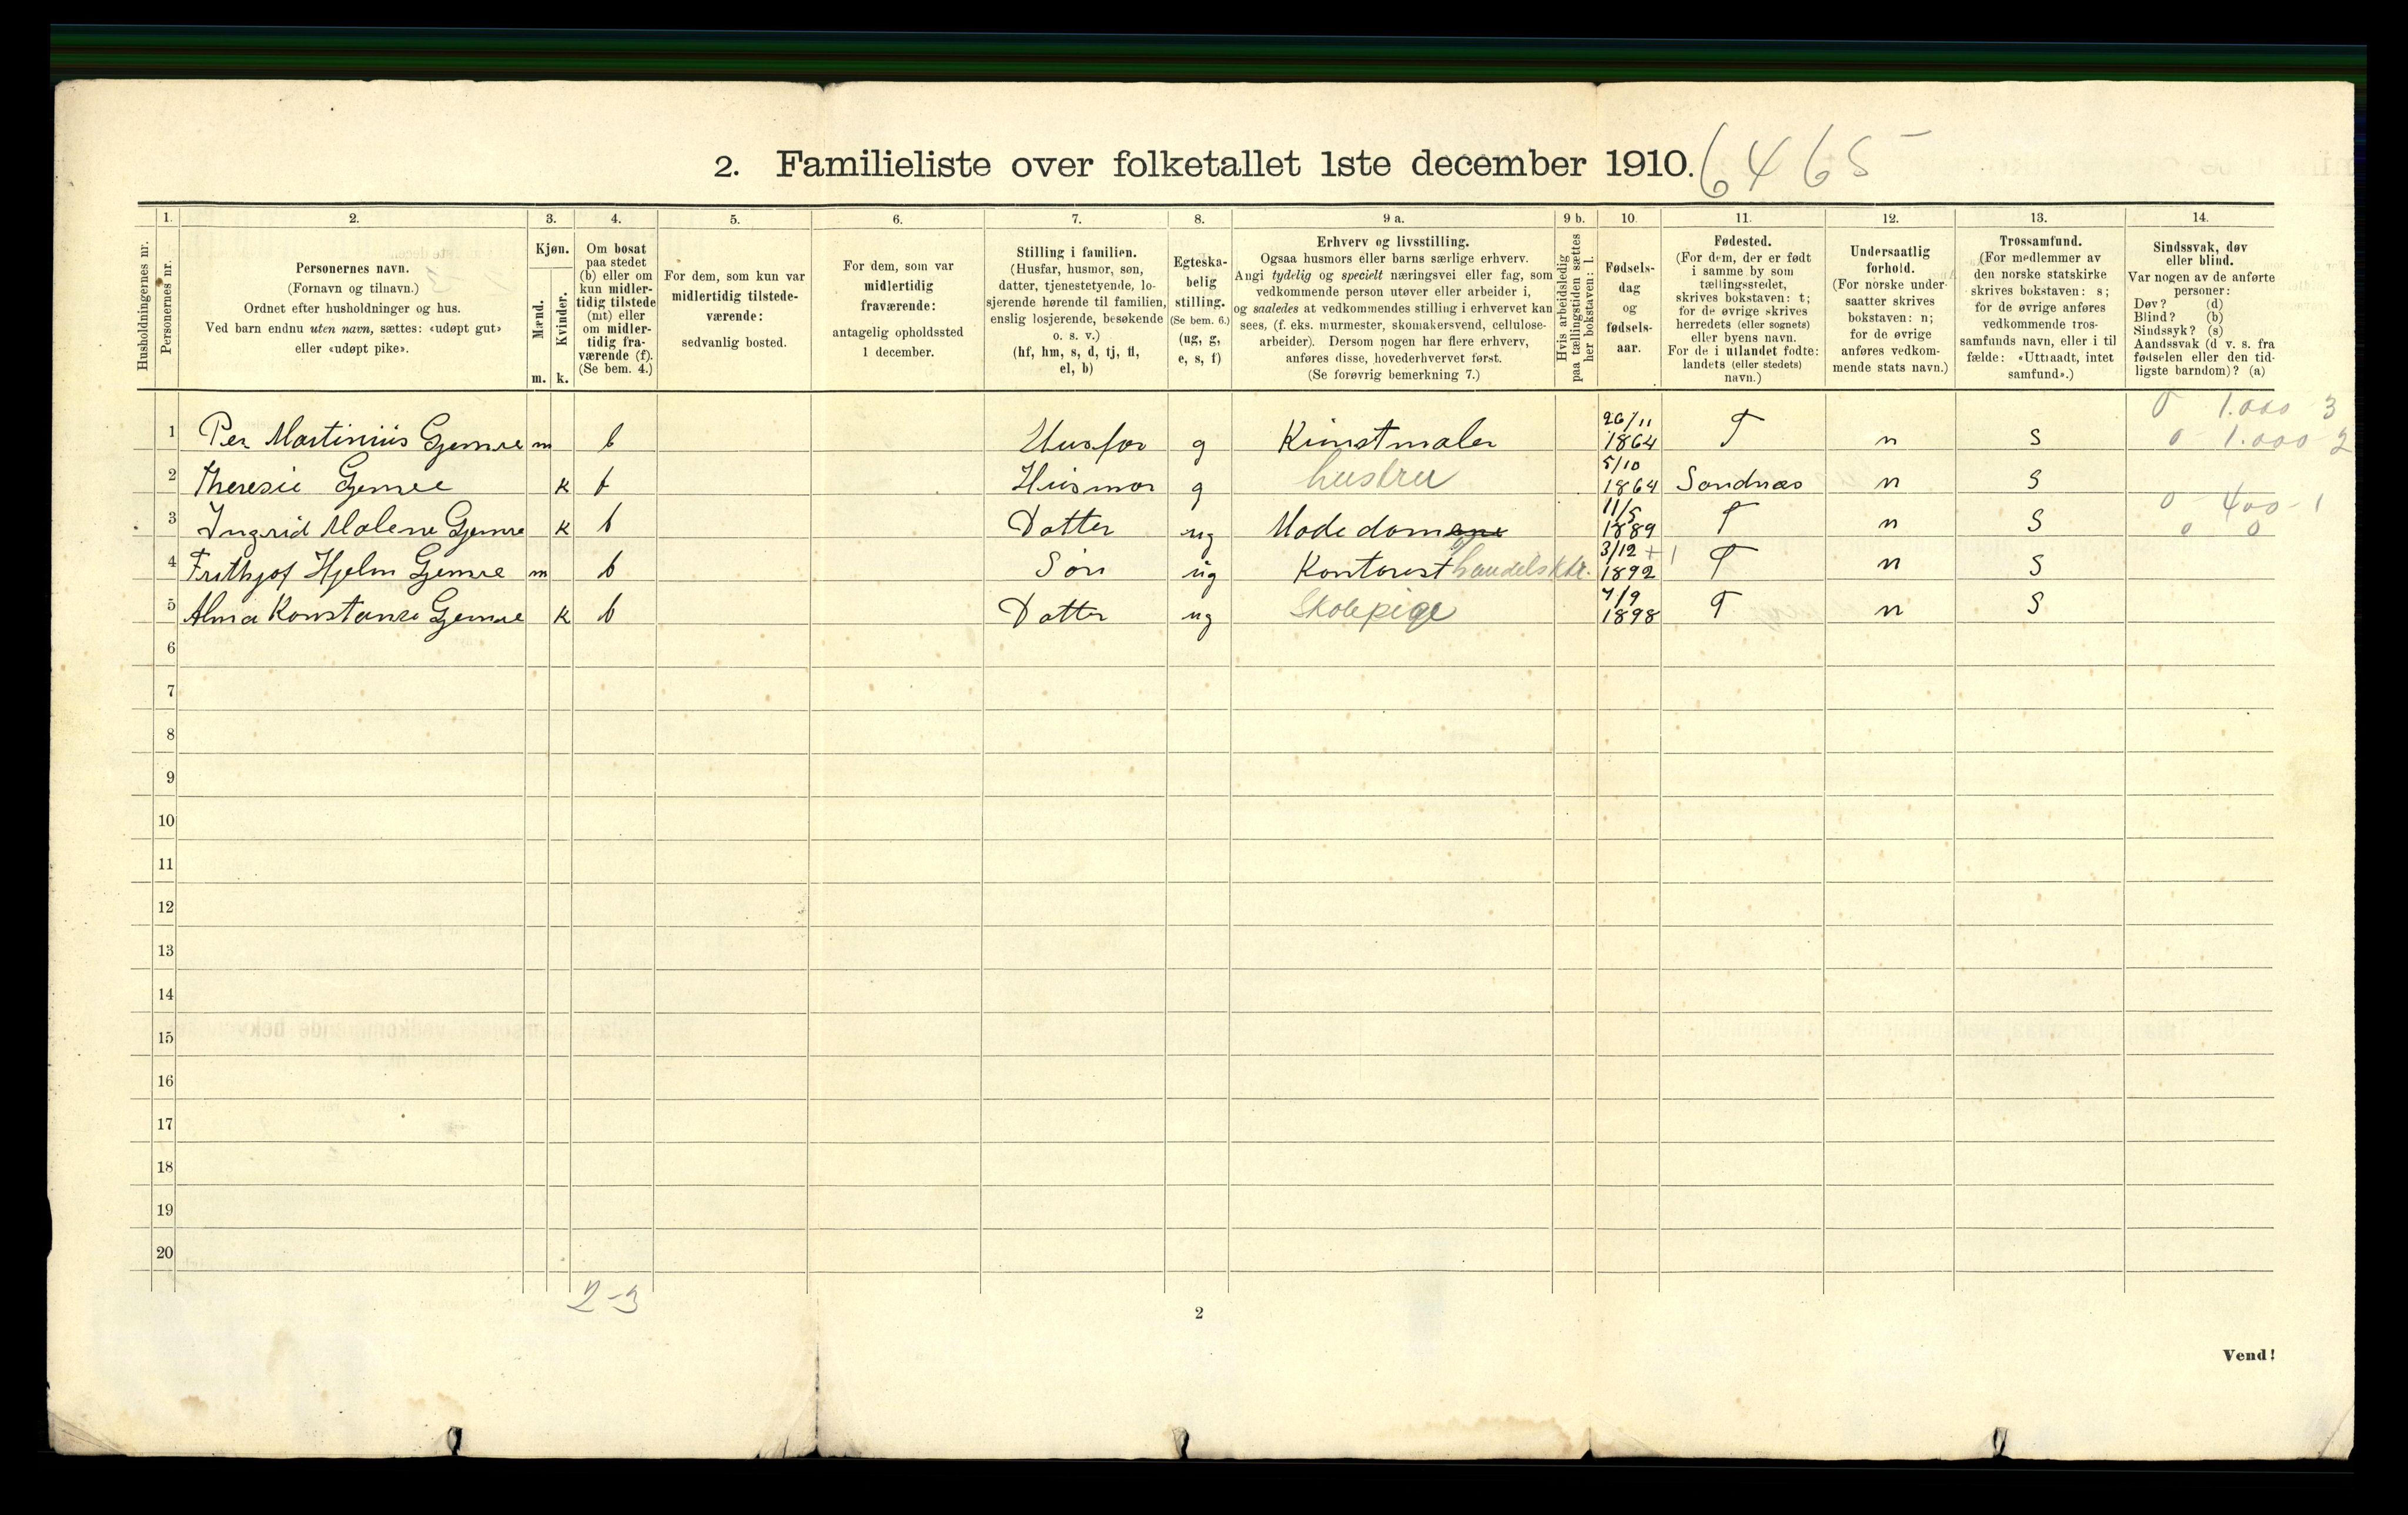 2. Familieliste over folketallet 1ste december 1910.
6465
Husholdningernes nr.
1.
Personernes nr.
2.
Personernes navn.
(Fornavn og tilnavn.)
Ordnet efter husholdninger og hus.
Ved barn endnu uten navn, sættes: «udøpt gut»
eller «udøpt pike».
3.
Kjøn.
Mænd.
Kvinder.
m. k.
4.
Om bosat
paa stedet
(b) eller om
kun midler-
tidig tilstede
(mt) eller
om midler-
tidig fra-
værende (f).
(Se bem. 4.)
5.
For dem, som kun var
midlertidig tilstede-
værende:
sedvanlig bosted.
6.
For dem, som var
midlertidig
fraværende:
antagelig opholdssted
1 december.
7.
Stilling i familien.
(Husfar, husmor, søn,
datter, tjenestetyende, lo-
sjerende hørende til familien,
enslig losjerende, besøkende
o. s. v.)
(hf, hm, s, d, tj, fl,
el, b)
8.
Egteska-
belig
stilling.
(Se bem. 6.)
(ug, g,
e, s, f)
9 a.
Erhverv og livsstilling.
Ogsaa husmors eller barns særlige erhverv.
Angi tydelig og specielt næringsvei eller fag, som
vedkommende person utøver eller arbeider i,
og saaledes at vedkommendes stilling i erhvervet kan
sees, (f. eks. murmester, skomakersvend, cellulose-
arbeider). Dersom nogen har flere erhverv,
anføres disse, hovederhvervet først.
(Se forøvrig bemerkning 7.)
9 b.
Hvis arbeidsledig
paa tællingstiden sættes
her bokstaven: l.
10.
Fødsels-
dag
og
fødsels-
aar.
11.
Fødested.
(For dem, der er født
i samme by som
tællingsstedet,
skrives bokstaven: t;
for de øvrige skrives
herredets (eller sognets)
eller byens navn.
For de i utlandet fødte:
landets (eller stedets)
navn.)
12.
Undersaatlig
forhold.
(For norske under-
saatter skrives
bokstaven: n;
for de øvrige
anføres vedkom-
mende stats navn.)
13.
Trossamfund.
(For medlemmer av
den norske statskirke
skrives bokstaven: s;
for de øvrige anføres
vedkommende tros-
samfunds navn, eller i til
fælde: «Uttraadt, intet
samfund».)
14.
Sindssvak, døv
eller blind.
Var nogen av de anførte
personer:
Døv? (d)
Blind? (b)
Sindssyk? (s)
Aandssvak (d v. s. fra
fødselen eller den tid-
ligste barndom)? (a)
0 1.000 3
1 Per Martinius Gjemre m b Husfar g Kunstmaler 26/11 1864 T n S 0 1.000 2
2 Theresie Gjemre k b Husmor g hustru 5/10 1864 Sandnæs n S
0 400 - 1
3 Ingrid Malene Gjemre k b Datter ug Modedame 11/5 1889 T n S 0 0
4 Frithjof Hjelm Gjemre m b Søn ug Kontorist handelsktr. 3/12 1892 T n S
5 Alma Konstanse Gjemre k b Datter ug Skolepige 7/9 1898 T n S
6
7
8
9
10
11
12
13
14
15
16
17
18
19
20
2-3
2
Vend!